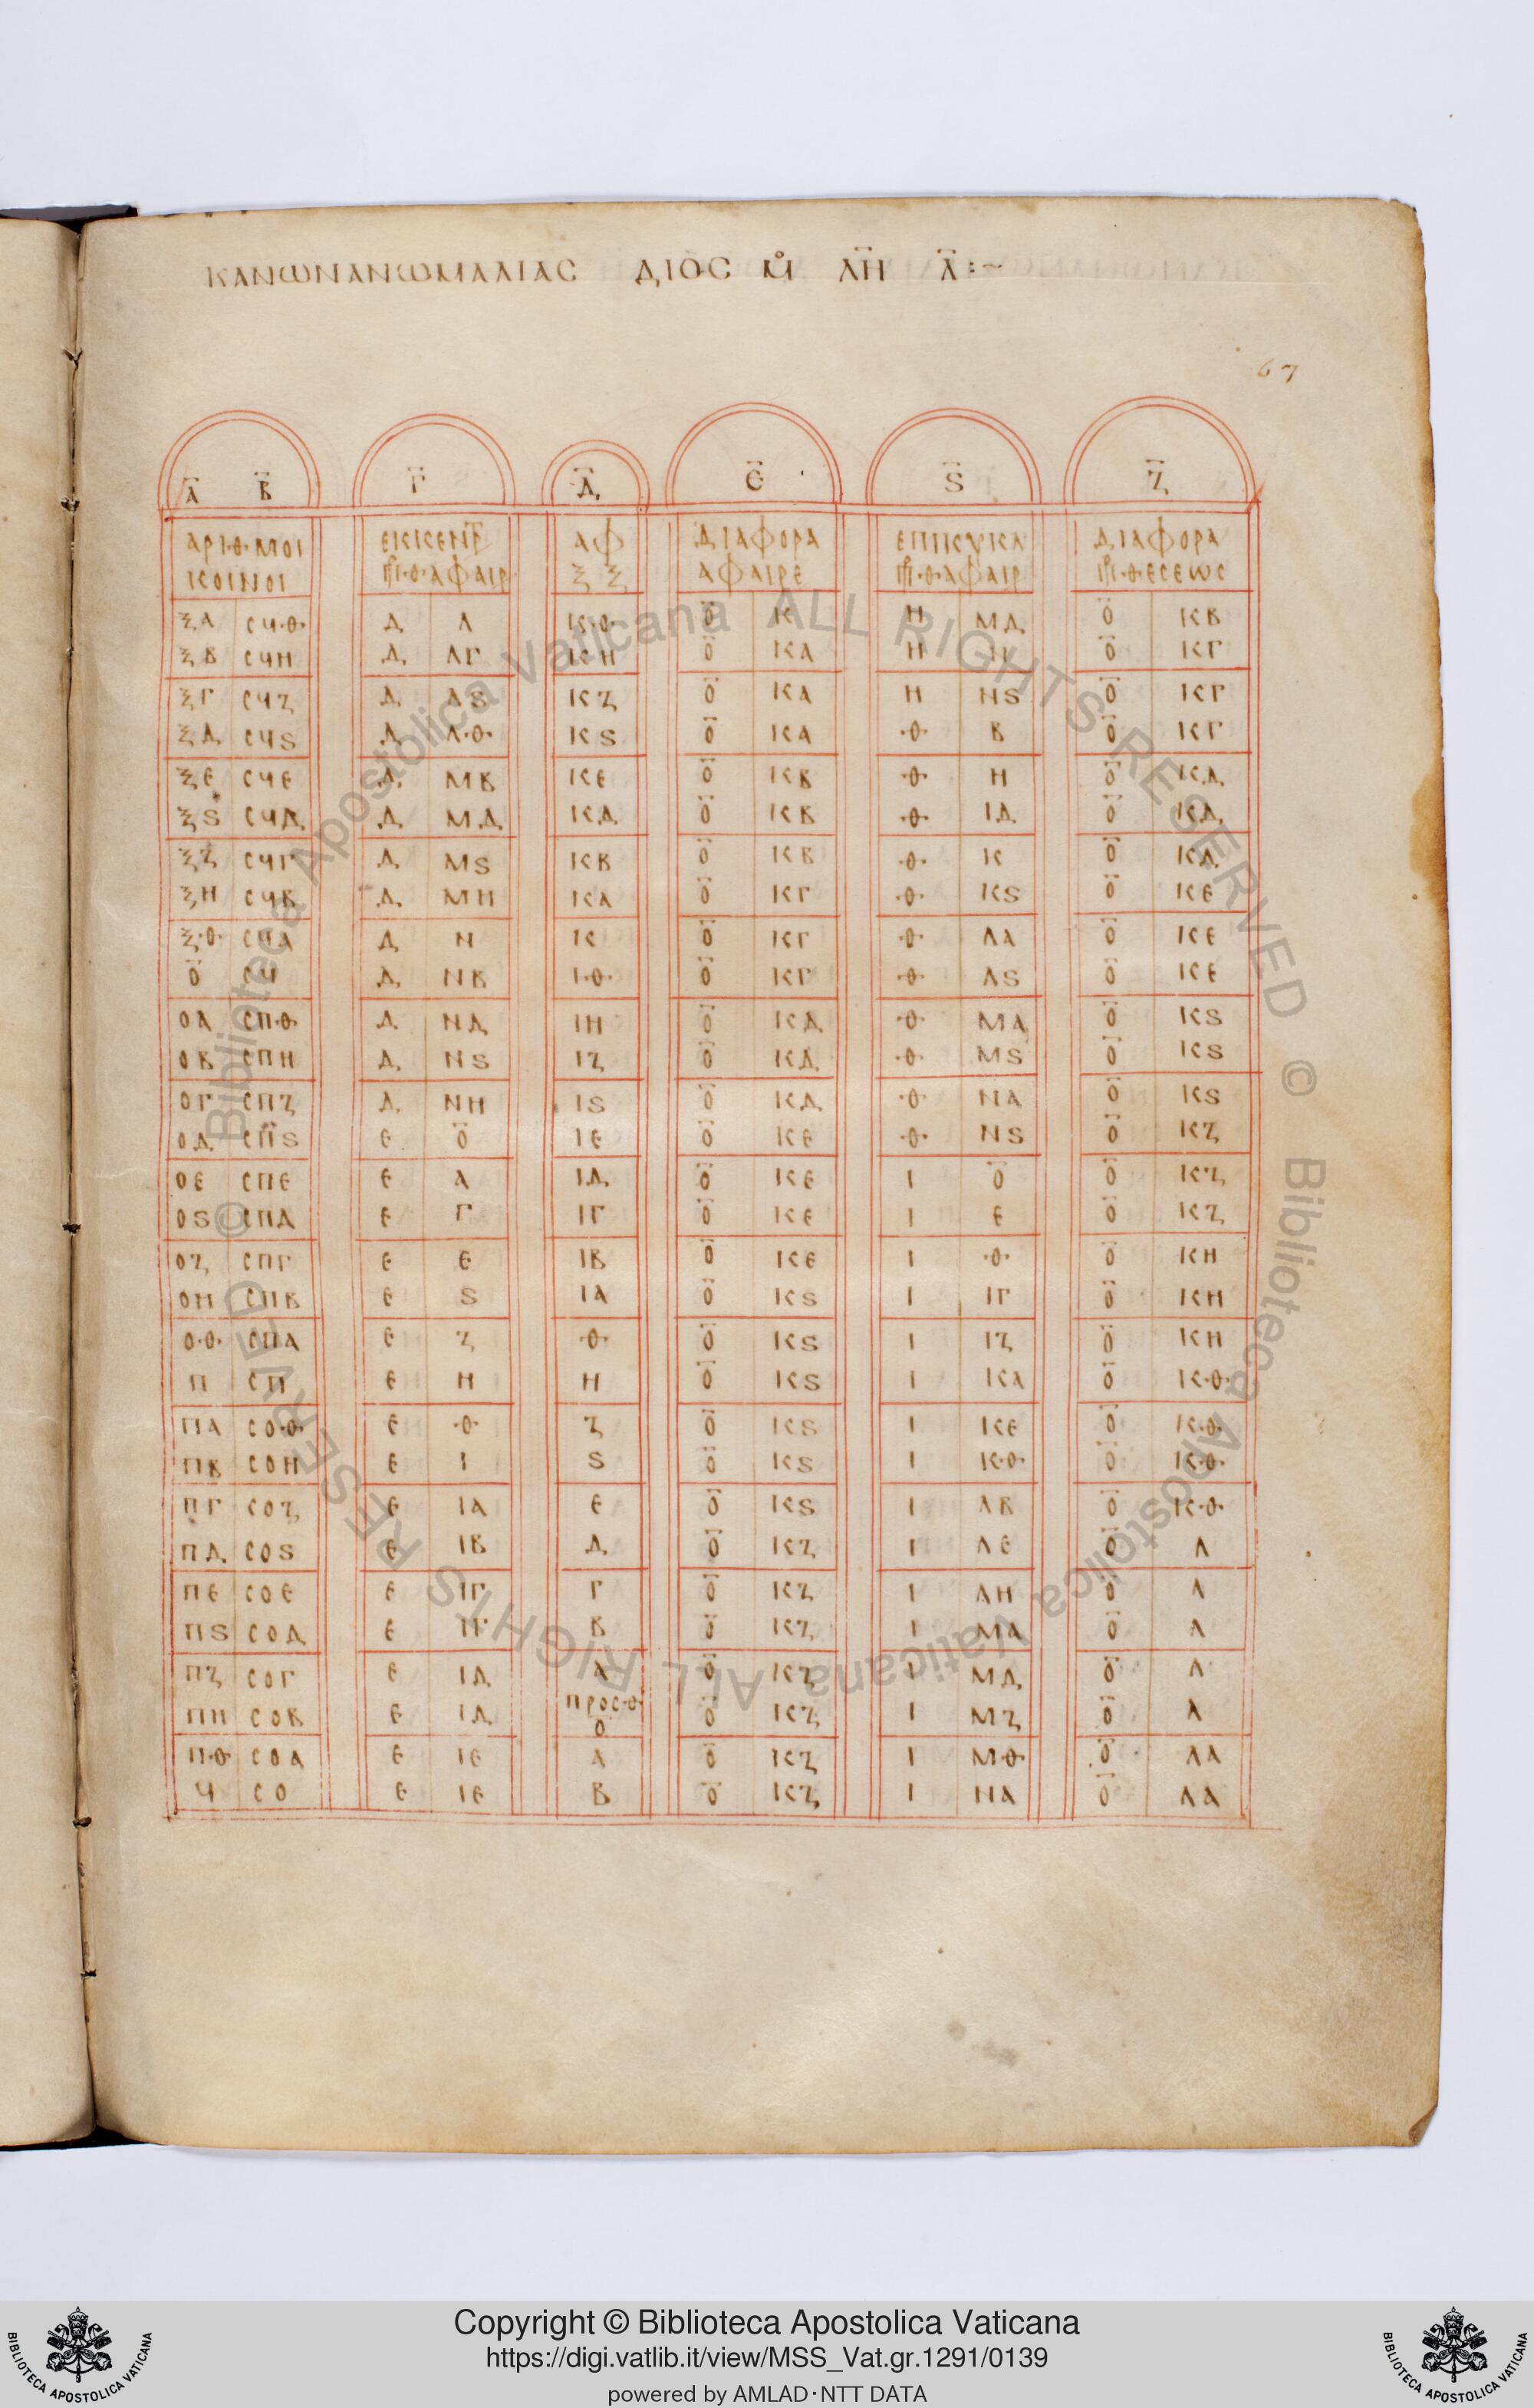 ΚΑΝΩΝ ΑΝΩΜΑΛΙΑΣ ΔΙΟΣ ΛΗ Λ:~
67
Α Β Γ Δ Ε Ϛ Ζ
ΑΡΙΘΜΟΙ ΕΚΚΕΝΤΡ ΑΦ ΔΙΑΦΟΡΑ ΕΠΙΚΥΚΛ ΔΙΑΦΟΡΑ
ΚΟΙΝΟΙ ΠΡΘΑΦΑΙΡ ΞΞ ΑΦΑΙΡΕ ΠΡΘΑΦΑΙΡ ΠΡΘΕϹΕΩϹ
ΞΑ ϹϤΘ Δ Λ ΚΘ Ο Κ Η ΜΔ Ο ΚΒ
ΞΒ ϹϤΗ Δ ΛΓ ΚΗ Ο ΚΑ Η Ν Ο ΚΓ
ΞΓ ϹϤΖ Δ ΛϚ ΚΖ Ο ΚΑ Η ΝϚ Ο ΚΓ
ΞΔ ϹϤϚ Δ ΛΘ ΚϚ Ο ΚΑ Θ Β Ο ΚΓ
ΞΕ ϹϤΕ Δ ΜΒ ΚΕ Ο ΚΒ Θ Η Ο ΚΔ
ΞϚ ϹϤΔ Δ ΜΔ ΚΔ Ο ΚΒ Θ ΙΔ Ο ΚΔ
ΞΖ ϹϤΓ Δ ΜϚ ΚΒ Ο ΚΒ Θ Κ Ο ΚΔ
ΞΗ ϹϤΒ Δ ΜΗ ΚΑ Ο ΚΓ Θ ΚϚ Ο ΚΕ
ΞΘ ϹϤΑ Δ Ν Κ Ο ΚΓ Θ ΛΑ Ο ΚΕ
Ο ϹϤ Δ ΝΒ ΙΘ Ο ΚΓ Θ ΛϚ Ο ΚΕ
ΟΑ ϹΠΘ Δ ΝΔ ΙΗ Ο ΚΔ Θ ΜΑ Ο ΚϚ
ΟΒ ϹΠΗ Δ ΝϚ ΙΖ Ο ΚΔ Θ ΜϚ Ο ΚϚ
ΟΓ ϹΠΖ Δ ΝΗ ΙϚ Ο ΚΔ Θ ΝΑ Ο ΚϚ
ΟΔ ϹΠϚ Ε Ο ΙΕ Ο ΚΕ Θ ΝϚ Ο ΚΖ
ΟΕ ϹΠΕ Ε Α ΙΔ Ο ΚΕ Ι Ο Ο ΚΖ
ΟϚ ϹΠΔ Ε Γ ΙΓ Ο ΚΕ Ι Ε Ο ΚΖ
ΟΖ ϹΠΓ Ε Ε ΙΒ Ο ΚΕ Ι Θ Ο ΚΗ
ΟΗ ϹΠΒ Ε Ϛ ΙΑ Ο ΚϚ Ι ΙΓ Ο ΚΗ
ΟΘ ϹΠΑ Ε Ζ Θ Ο ΚϚ Ι ΙΖ Ο ΚΗ
Π ϹΠ Ε Η Η Ο ΚϚ Ι ΚΑ Ο ΚΘ
ΠΑ ϹΟΘ Ε Θ Ζ Ο ΚϚ Ι ΚΕ Ο ΚΘ
ΠΒ ϹΟΗ Ε Ι Ϛ Ο ΚϚ Ι ΚΘ Ο ΚΘ
ΠΓ ϹΟΖ Ε ΙΑ Ε Ο ΚϚ Ι ΛΒ Ο ΚΘ
ΠΔ ϹΟϚ Ε ΙΒ Δ Ο ΚΖ Ι ΛΕ Ο Λ
ΠΕ ϹΟΕ Ε ΙΓ Γ Ο ΚΖ Ι ΛΗ Ο Λ
ΠϚ ϹΟΔ Ε ΙΓ Β Ο ΚΖ Ι ΜΑ Ο Λ
ΠΖ ϹΟΓ Ε ΙΔ Α Ο ΚΖ Ι ΜΔ Ο Λ
ΠΗ ϹΟΒ Ε ΙΔ ΠΡΟϹΘ Ο Ο ΚΖ Ι ΜΖ Ο Λ
ΠΘ ϹΟΑ Ε ΙΕ Α Ο ΚΖ Ι ΜΘ Ο ΛΑ
Ϥ ϹΟ Ε ΙΕ Β Ο ΚΖ Ι ΝΑ Ο ΛΑ
© Biblioteca Apostolica Vaticana ALL RIGHTS RESERVED © Biblioteca Apostolica Vaticana ALL RIGHTS RESERVED
Copyright © Biblioteca Apostolica Vaticana
https://digi.vatlib.it/view/MSS_Vat.gr.1291/0139
powered by AMLAD·NTT DATA
BIBLIOTECA APOSTOLICA VATICANA
BIBLIOTECA APOSTOLICA VATICANA